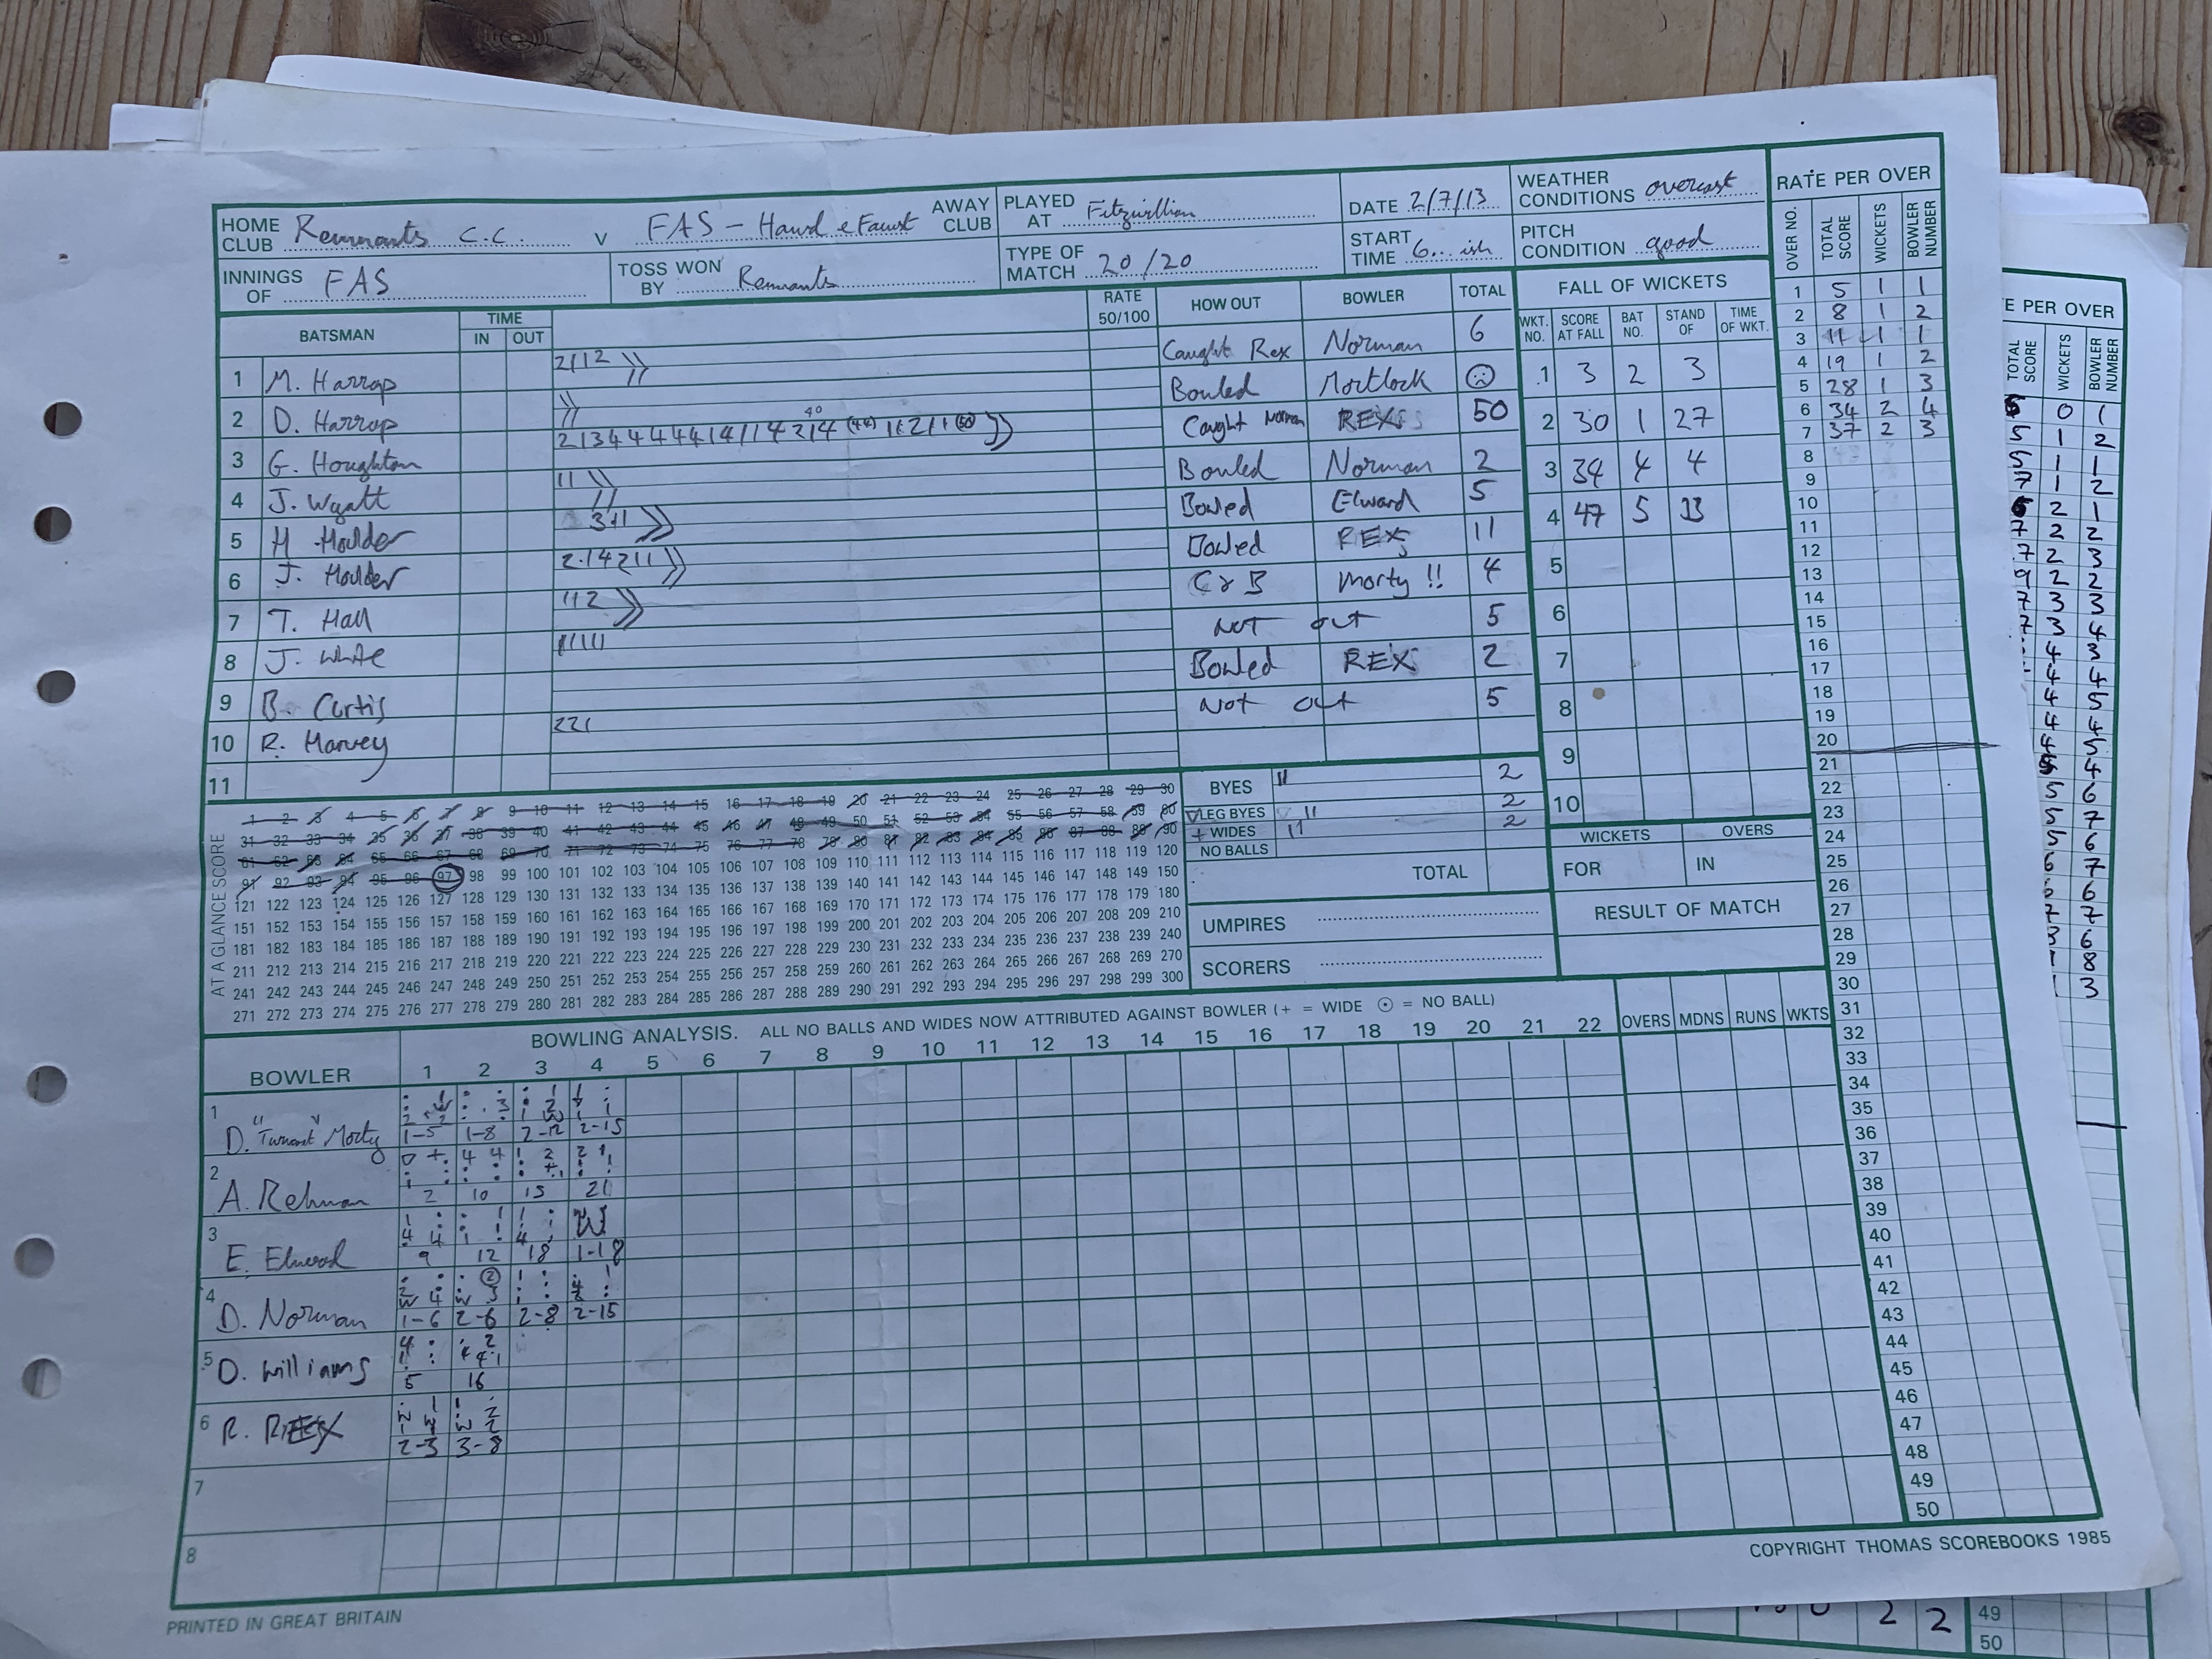 HOME CLUB Remnants C.C. V FAS - Hawd e Faust AWAY CLUB
PLAYED AT Fitzwillian
DATE 2/7/13
WEATHER CONDITIONS overcast
INNINGS OF FAS
TOSS WON BY Remnants
TYPE OF MATCH 20/20
START TIME 6... ish
PITCH CONDITION good
BATSMAN TIME IN OUT RATE 50/100 HOW OUT BOWLER TOTAL
1 M. Harrap 2112 Caught Rex Norman 6
2 D. Harrap Bouled Mortlock ☹
3 G. Houghton Caught Norman REX 50
4 J. Wyatt 11 Bouled Norman 2
5 H Moulder 3+1 Bowled Elward 5
6 J. Moulder 2.14211 Bowled REX 11
7 T. Hall 112 C & B Morty !! 4
8 J. White 11111 Not out 5
9 B. Curtis Bowled REX 2
10 R. Harvey 221 Not out 5
11
FALL OF WICKETS
WKT. NO. SCORE AT FALL BAT NO. STAND OF TIME OF WKT.
1 3 2 3
2 30 1 27
3 34 4 4
4 47 5 13
5
6
7
8
9
10
BYES 11 2
LEG BYES 11 2
+ WIDES 11 2
NO BALLS
TOTAL
WICKETS OVERS
FOR IN
RESULT OF MATCH
UMPIRES
SCORERS
AT A GLANCE SCORE
1 2 3 4 5 6 7 8 9 10 11 12 13 14 15 16 17 18 19 20 21 22 23 24 25 26 27 28 29 30
31 32 33 34 35 36 37 38 39 40 41 42 43 44 45 46 47 48 49 50 51 52 53 54 55 56 57 58 59 60
61 62 63 64 65 66 67 68 69 70 71 72 73 74 75 76 77 78 79 80 81 82 83 84 85 86 87 88 89 90
91 92 93 94 95 96 97 98 99 100 101 102 103 104 105 106 107 108 109 110 111 112 113 114 115 116 117 118 119 120
121 122 123 124 125 126 127 128 129 130 131 132 133 134 135 136 137 138 139 140 141 142 143 144 145 146 147 148 149 150
151 152 153 154 155 156 157 158 159 160 161 162 163 164 165 166 167 168 169 170 171 172 173 174 175 176 177 178 179 180
181 182 183 184 185 186 187 188 189 190 191 192 193 194 195 196 197 198 199 200 201 202 203 204 205 206 207 208 209 210
211 212 213 214 215 216 217 218 219 220 221 222 223 224 225 226 227 228 229 230 231 232 233 234 235 236 237 238 239 240
241 242 243 244 245 246 247 248 249 250 251 252 253 254 255 256 257 258 259 260 261 262 263 264 265 266 267 268 269 270
271 272 273 274 275 276 277 278 279 280 281 282 283 284 285 286 287 288 289 290 291 292 293 294 295 296 297 298 299 300
BOWLING ANALYSIS. ALL NO BALLS AND WIDES NOW ATTRIBUTED AGAINST BOWLER (+ = WIDE ⊙ = NO BALL)
BOWLER 1 2 3 4 5 6 7 8 9 10 11 12 13 14 15 16 17 18 19 20 21 22 OVERS MDNS RUNS WKTS
1 D. Morty 1-5 1-8 2-12 2-15
2 A. Rehman 2 10 15 21
3 E. Elwood 9 12 18 1-18
4 D. Norman 1-6 2-6 2-8 2-15
5 O. Williams 5 16
6 R. REX 2-3 3-8
7
8
RATE PER OVER
OVER NO. TOTAL SCORE WICKETS BOWLER NUMBER
1 5 1 1
2 8 1 2
3 11 1 1
4 19 1 2
5 28 1 3
6 34 2 4
7 37 2 3
8
9
10
11
12
13
14
15
16
17
18
19
20
21
22
23
24
25
26
27
28
29
30
31
32
33
34
35
36
37
38
39
40
41
42
43
44
45
46
47
48
49
50
PRINTED IN GREAT BRITAIN
COPYRIGHT THOMAS SCOREBOOKS 1985
E PER OVER
TOTAL SCORE WICKETS BOWLER NUMBER
0 1
5 1 2
5 1 1
7 1 2
2 1
7 2 2
7 2 3
9 2 2
7 3 3
7 3 4
4 3
4 4
4 5
4 4
5
4
5 6
5 7
5 6
6 7
6
7 7
6
8
3
2 2
49
50